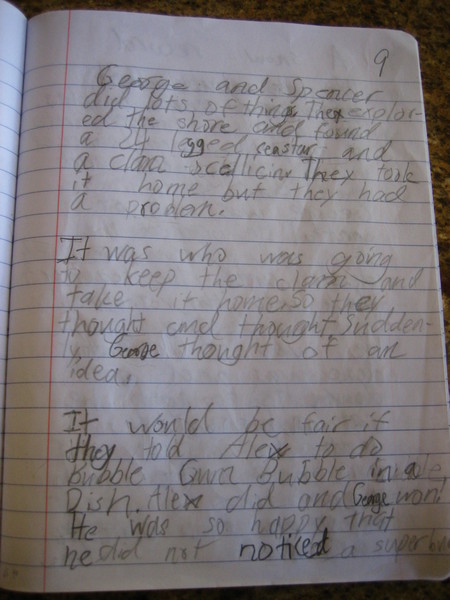 9
George and Spencer
did lots of things. They explor-
ed the shore and found
a 24 legged seastar and
a clam They took
it home but they had
a prodem.
It was who was going
to keep the clam and
take it home. So they
thought and thought. Sudden-
ly George thought of an
idea.
It would be fair if
they told Alex to do
Bubble Gum Bubble in a
Dish. Alex did and George won!
He was so happy that
he did not noticed a super